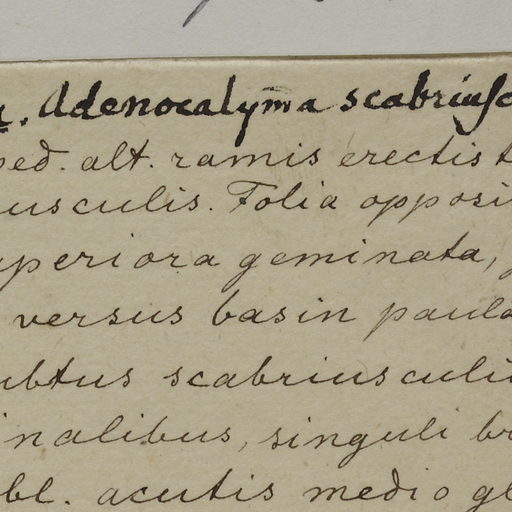 . Adenocalyma scabriusc
ped. alt. ramis erectis t
usculis. Folia opposi
uperiora geminata,
versus basin paula
ubtus scabriusculi
inalibus, singuli br
bl. acutis medio gl